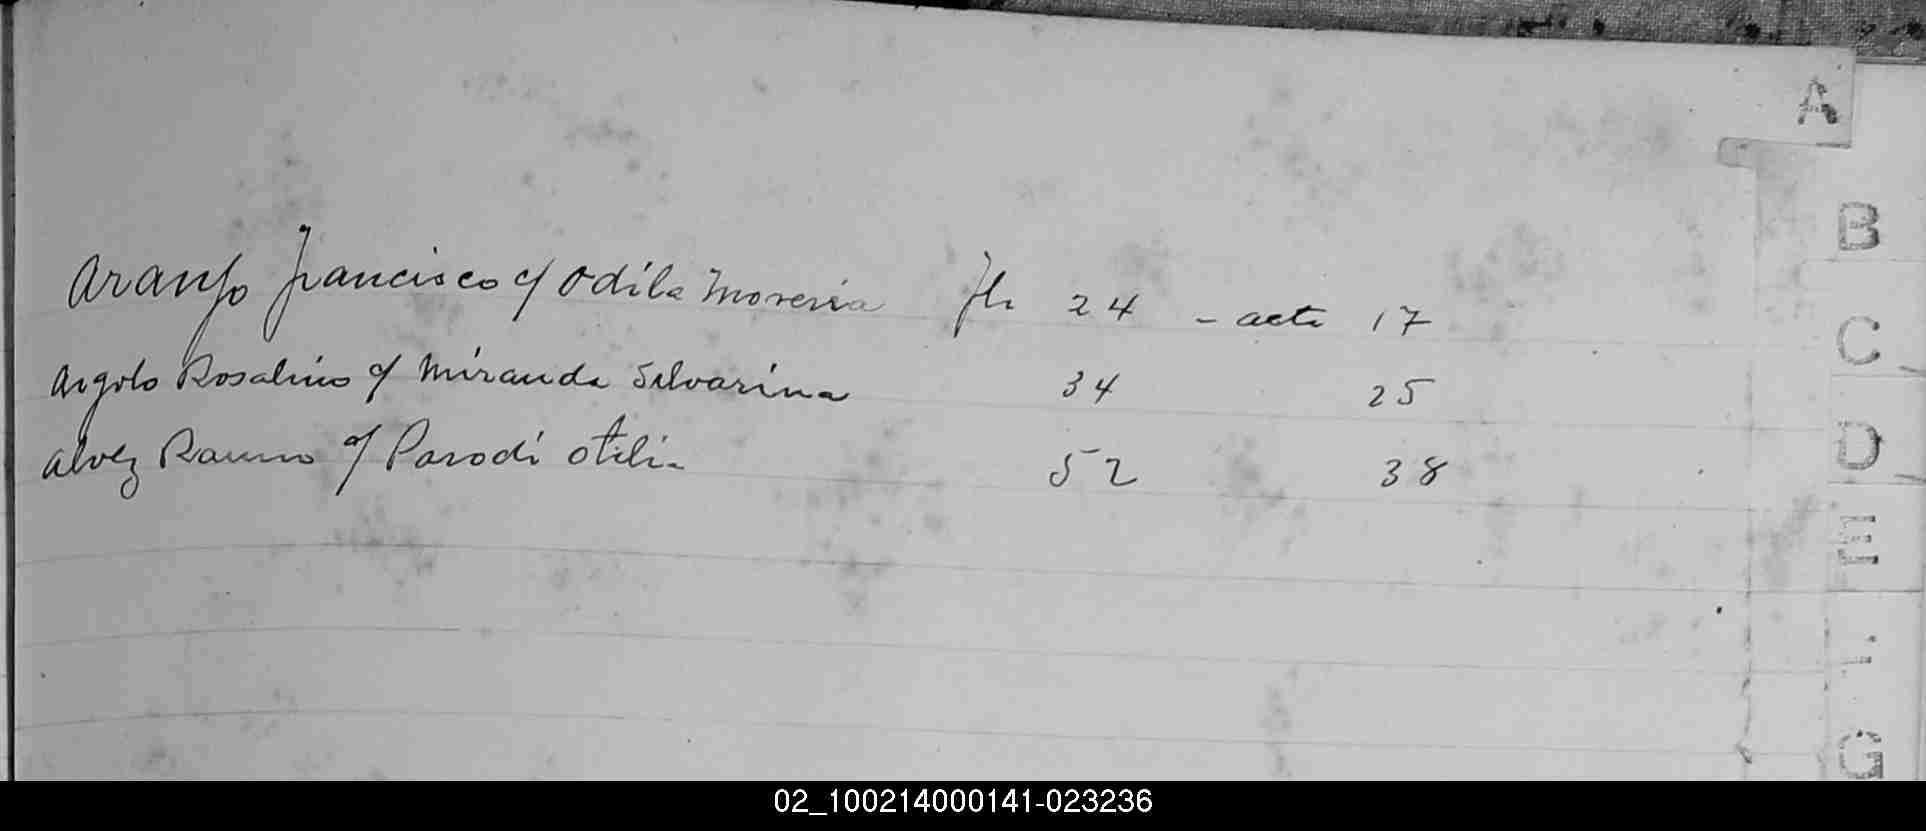 A
Araujo Francisco c/ Odila Moreira Fli 24 - acta 17
B
C
Argolo Rosalino c/ Miranda Silvarina 34 25
D
Alvez Ramo c/ Parodi Otilia 52 38
E
G
02_100214000141-023236